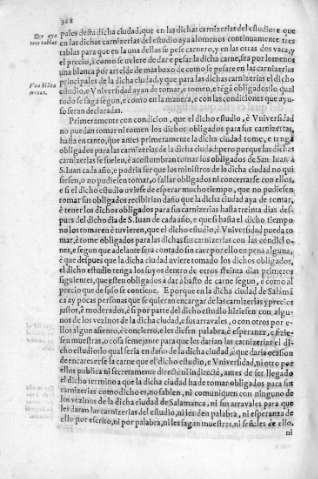 pales desta dicha ciudad, que en las dichas carnizerias del estudio e que
en las dichas carnizerias del estudio aya alomenos continuamente tres
tablas para que en la una dellas se pese carnero, y en las otras dos vaca, y
el precio, a como se uviere de dar e pesar la dicha carne, sea por lo menos
una blanca por arrelde de mas baxo de como se pesare en las carnizerias
principales de la dicha ciudad, y que para las dichas carnizerias el dicho
estudio, e Vniversidad ayan de tomar, e tomen, e tēga obligados lo qual
todo se haga segun, e como en la manera, e con las condiciones que ayu-
so seran declaradas.
Primeramente con condicion, que el dicho estudio, e Vniversidad
no puedan tomar ni tomen los dichos obligados para sus carnizerias,
hasta en tanto, que antes primeramente la dicha ciudad tome, e tenga
obligados para las carnizerias de la dicha ciudad: pero porque las dichas
carnizerias se suelen, e acostumbran tomar los obligados de San Juan a
S. Juan cada año, e podria ser que los ministros de la dicha ciudad no qui
siesen, o no pudiesen tomar, o hallar obligados ni concertarse con ellos,
e si el dicho estudio uviese de esperar mucho tiempo, que no pudiesen
tomar sus obligados recibirian daño que la dicha ciudad aya de tomar,
e tener los dichos obligados para sus carnizerias hasta treinta dias des-
pues del dicho dia de S. Juan de cada año, e que si hasta el dicho tiempo
no los tomaren e tuvieren, que el dicho estudio, e Vniversidad pueda to-
mar, e tome obligados para las dichas sus carnizerias con las condicio-
nes, e segun que adelante sera contado sin caer por ello en pena alguna,
e que despues que la dicha ciudad uviere tomado los dichos obligados,
el dicho estudio tenga los suyos dentro de otros treinta dias primeros
siguientes, que estos obligados a dar abasto de carne segun, e como al
precio que de suso se contiene. E porque en la dicha ciudad de Salamā
ca ay pocas personas que se quieran encargar de las carnizerias y precios
justos, e moderados, e si por parte del dicho estudio hiziesen con algu-
nos de los vezinos de la dicha ciudad, e sus arravales, o con otros por e-
llos algun asiento, e concierto, e les diesen palabra, e esperança, o hizie-
sen muestras, o cosa semejante para que les darian las carnizerias del di-
cho estudio lo qual seria en daño de la dicha ciudad, e que daria ocasion
de encarecerse la carne que el dicho estudio, e Vniversidad, ni otro por
ellos publica ni secretamente directe ni indirecte, antes de ser llegado
el dicho termino a que la dicha ciudad ha de tomar obligados para sus
carnizerias como dicho es, no fablen, ni comuniquen con ninguno de
los vezinos de la dicha ciudad de Salamanca, ni sus arravales para que
les daran las carnizerias del estudio, ni les den palabra, ni esperança de
ello por escrito, ni por palabra, ni les fagan muestras, ni señales de ello,
ni